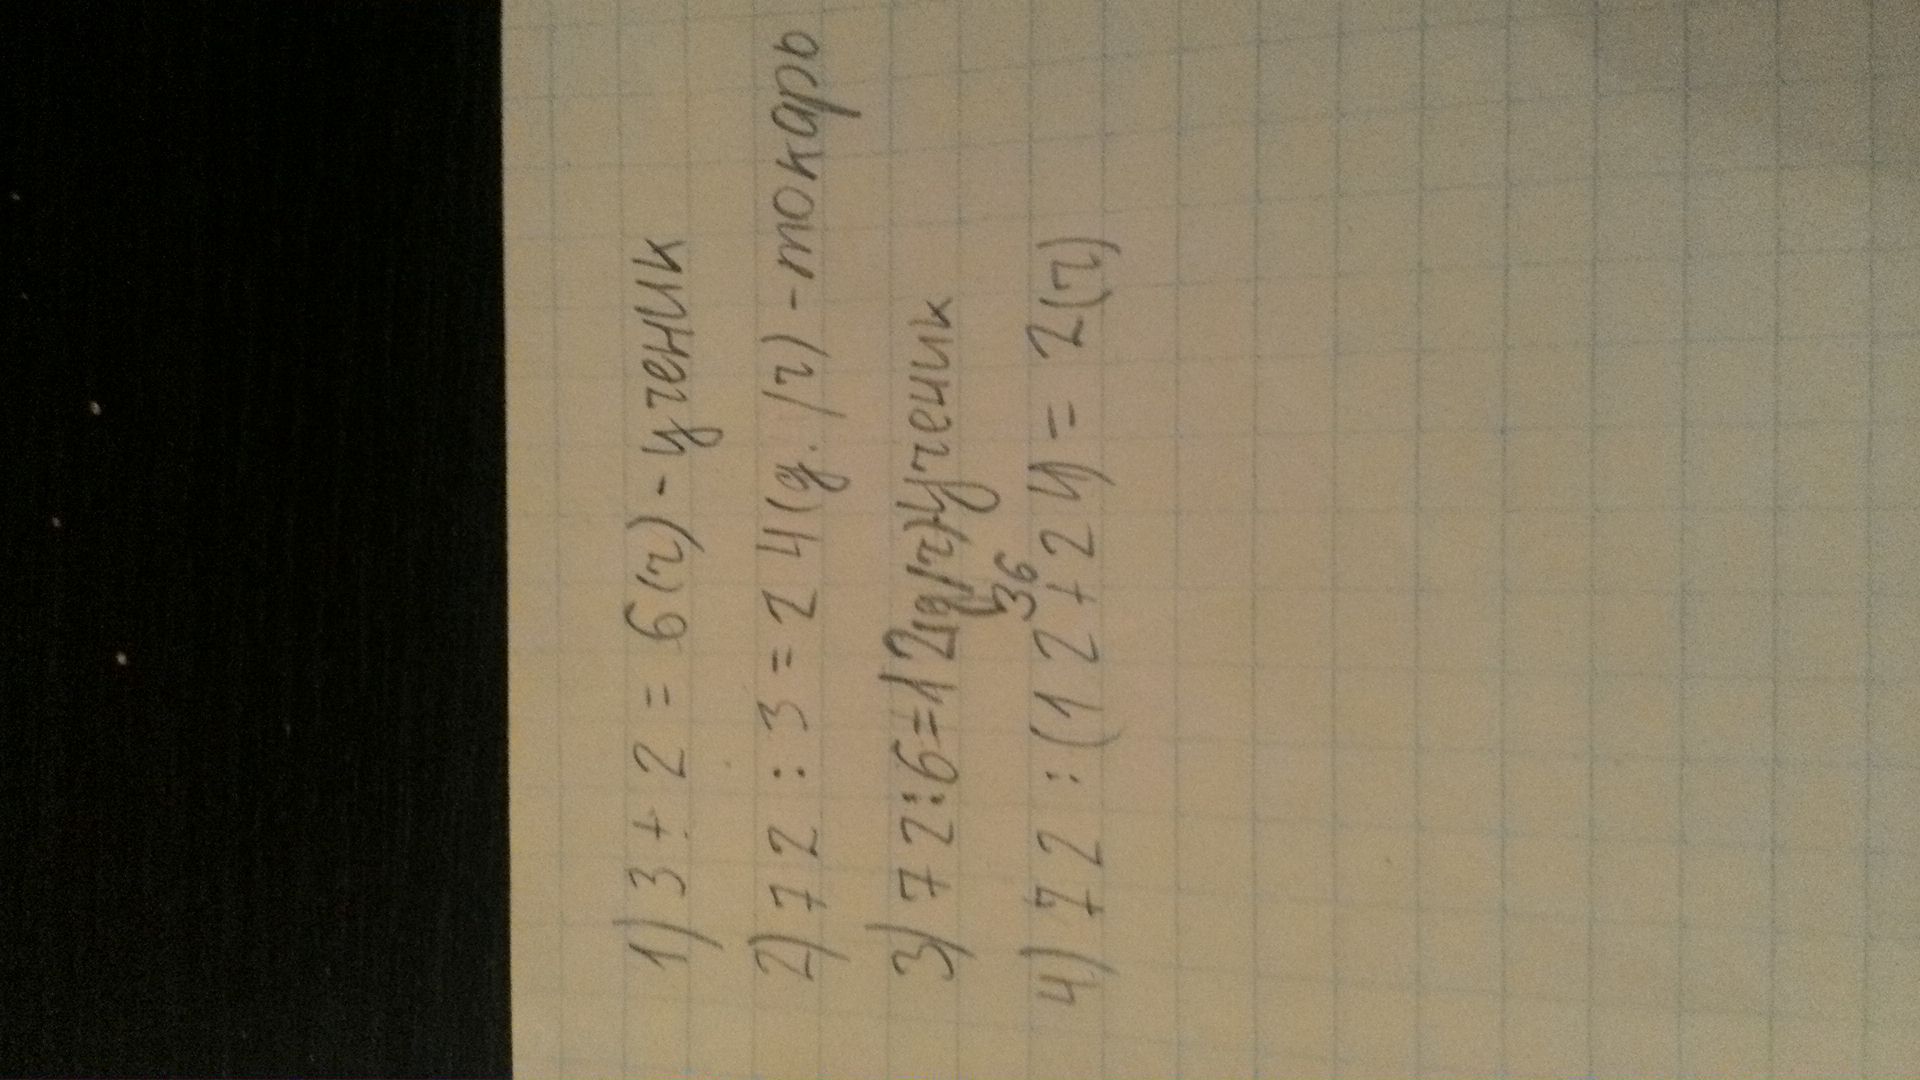 1) 3 + 2 = 6 (ч) - ученик
2) 72 : 3 = 24 (д. /ч) - токарь
3) 72 : 6 = 12 (д/ч) - ученик
36
4) 72 : (12 + 24) = 2 (ч)